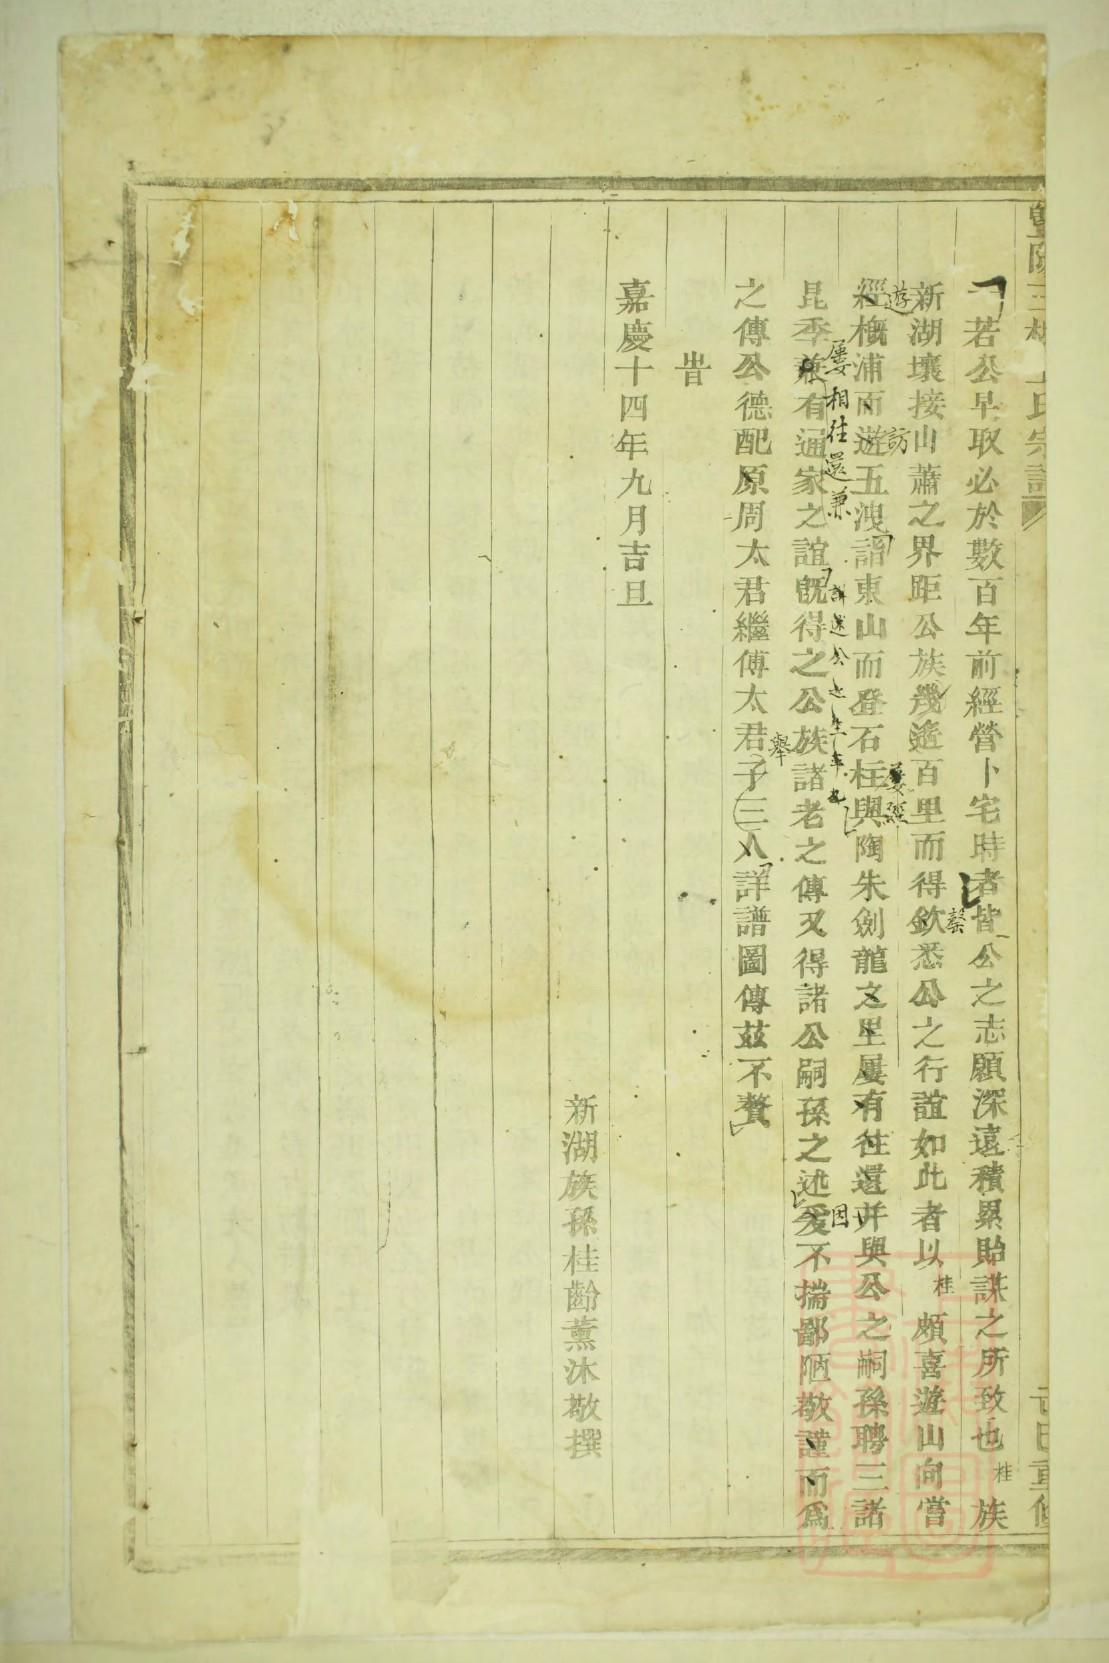 若公早取必於數百年前經營卜宅時者皆公之志願深遠積累貽謀之所致也桂族
新湖壤接山蕭之界距公族幾遙百里而得欽悉公之行誼如此者以桂頗喜遊山向嘗
經槪浦而遊五洩詣東山而登石柱與陶朱劍龍之里屢有往還并與公之嗣孫聘三諸
昆季兼有通家之誼旣得之公族諸老之傳又得諸公嗣孫之述爰不揣鄙陋敬謹而爲
之傳公德配原周太君繼傅太君子三人詳譜圖傳茲不贅
旹
嘉慶十四年九月吉旦
新湖族孫桂齡薰沐敬撰
遊
訪
屢經
屢相往還兼
因
舉
宗譜
重修